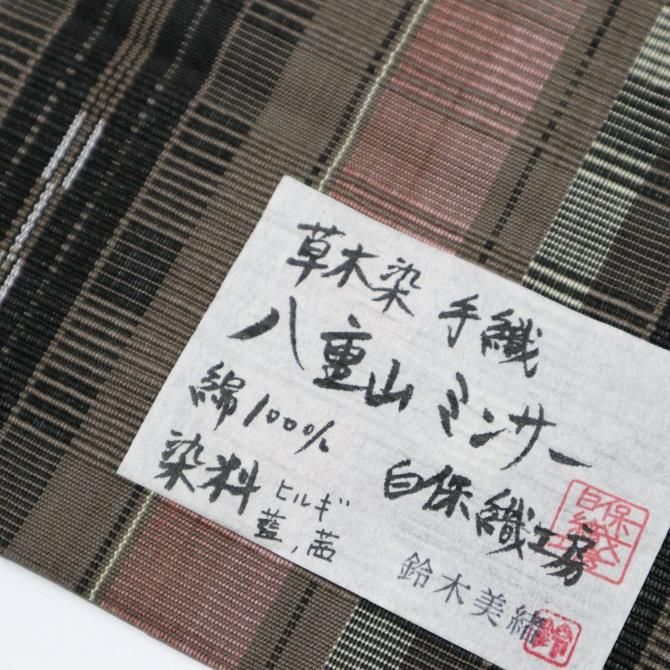 草木染 手織
八重山 ミンサー
綿100%
染料 ヒルギ
藍、茜
白保織工房
鈴木美緒
鈴